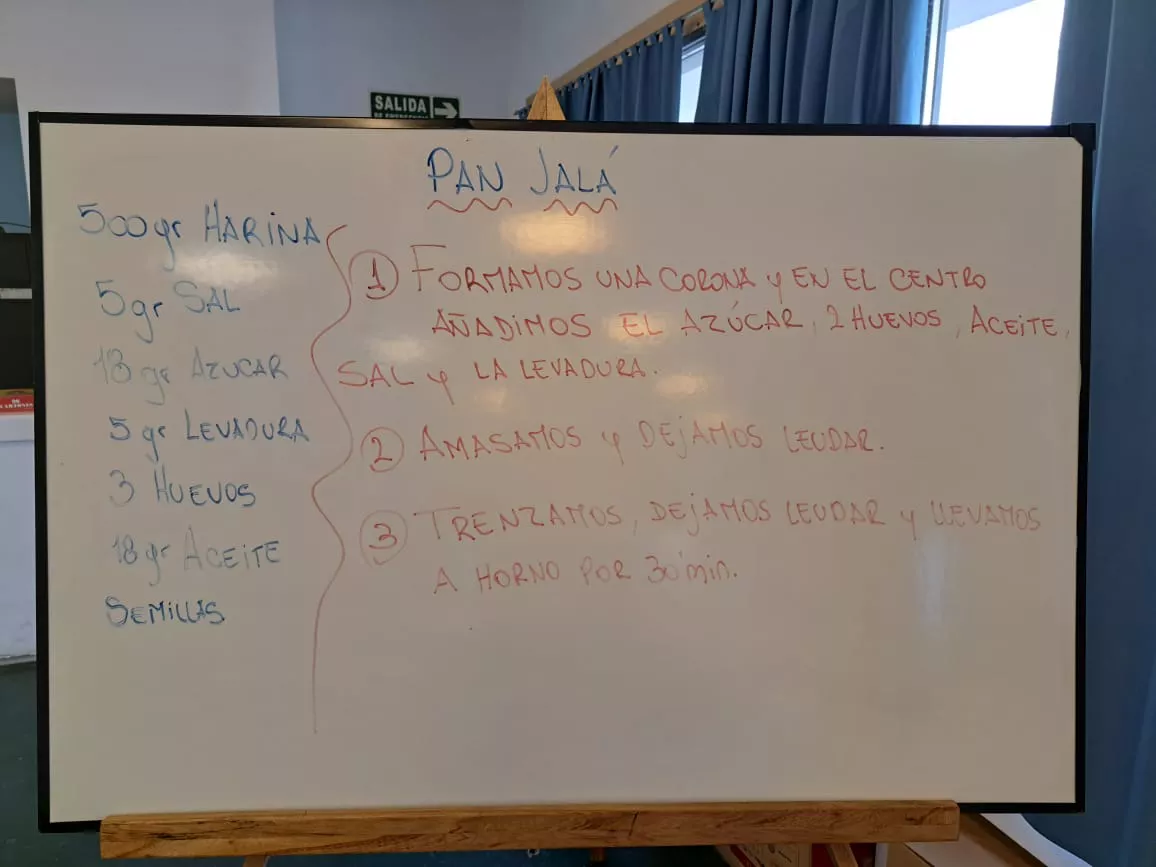 SALIDA
PAN JALÁ
500gr HARINA
5gr SAL
18 gr AZUCAR
5 gr LEVADURA
3 HUEVOS
18 gr ACEITE
SEMILLAS
1 FORMAMOS UNA CORONA y EN EL CENTRO
AÑADIMOS EL AZÚCAR, 2 HUEVOS, ACEITE,
SAL y LA LEVADURA.
2 AMASAMOS y DEJAMOS LEUDAR.
3 TRENZAMOS, DEJAMOS LEUDAR y LLEVAMOS
A HORNO POR 30 min.